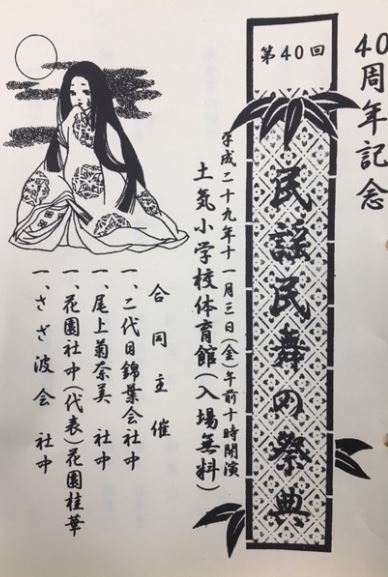 40周年記念
第40回
民謡民舞の祭典
平成二十九年十一月三日(金)午前十時開演
土気小学校体育館(入場無料)
合同主催
一、二代目錦葉会社中
一、尾上菊奈美 社中
一、花園社中(代表)花園桂華
一、さざ波会 社中